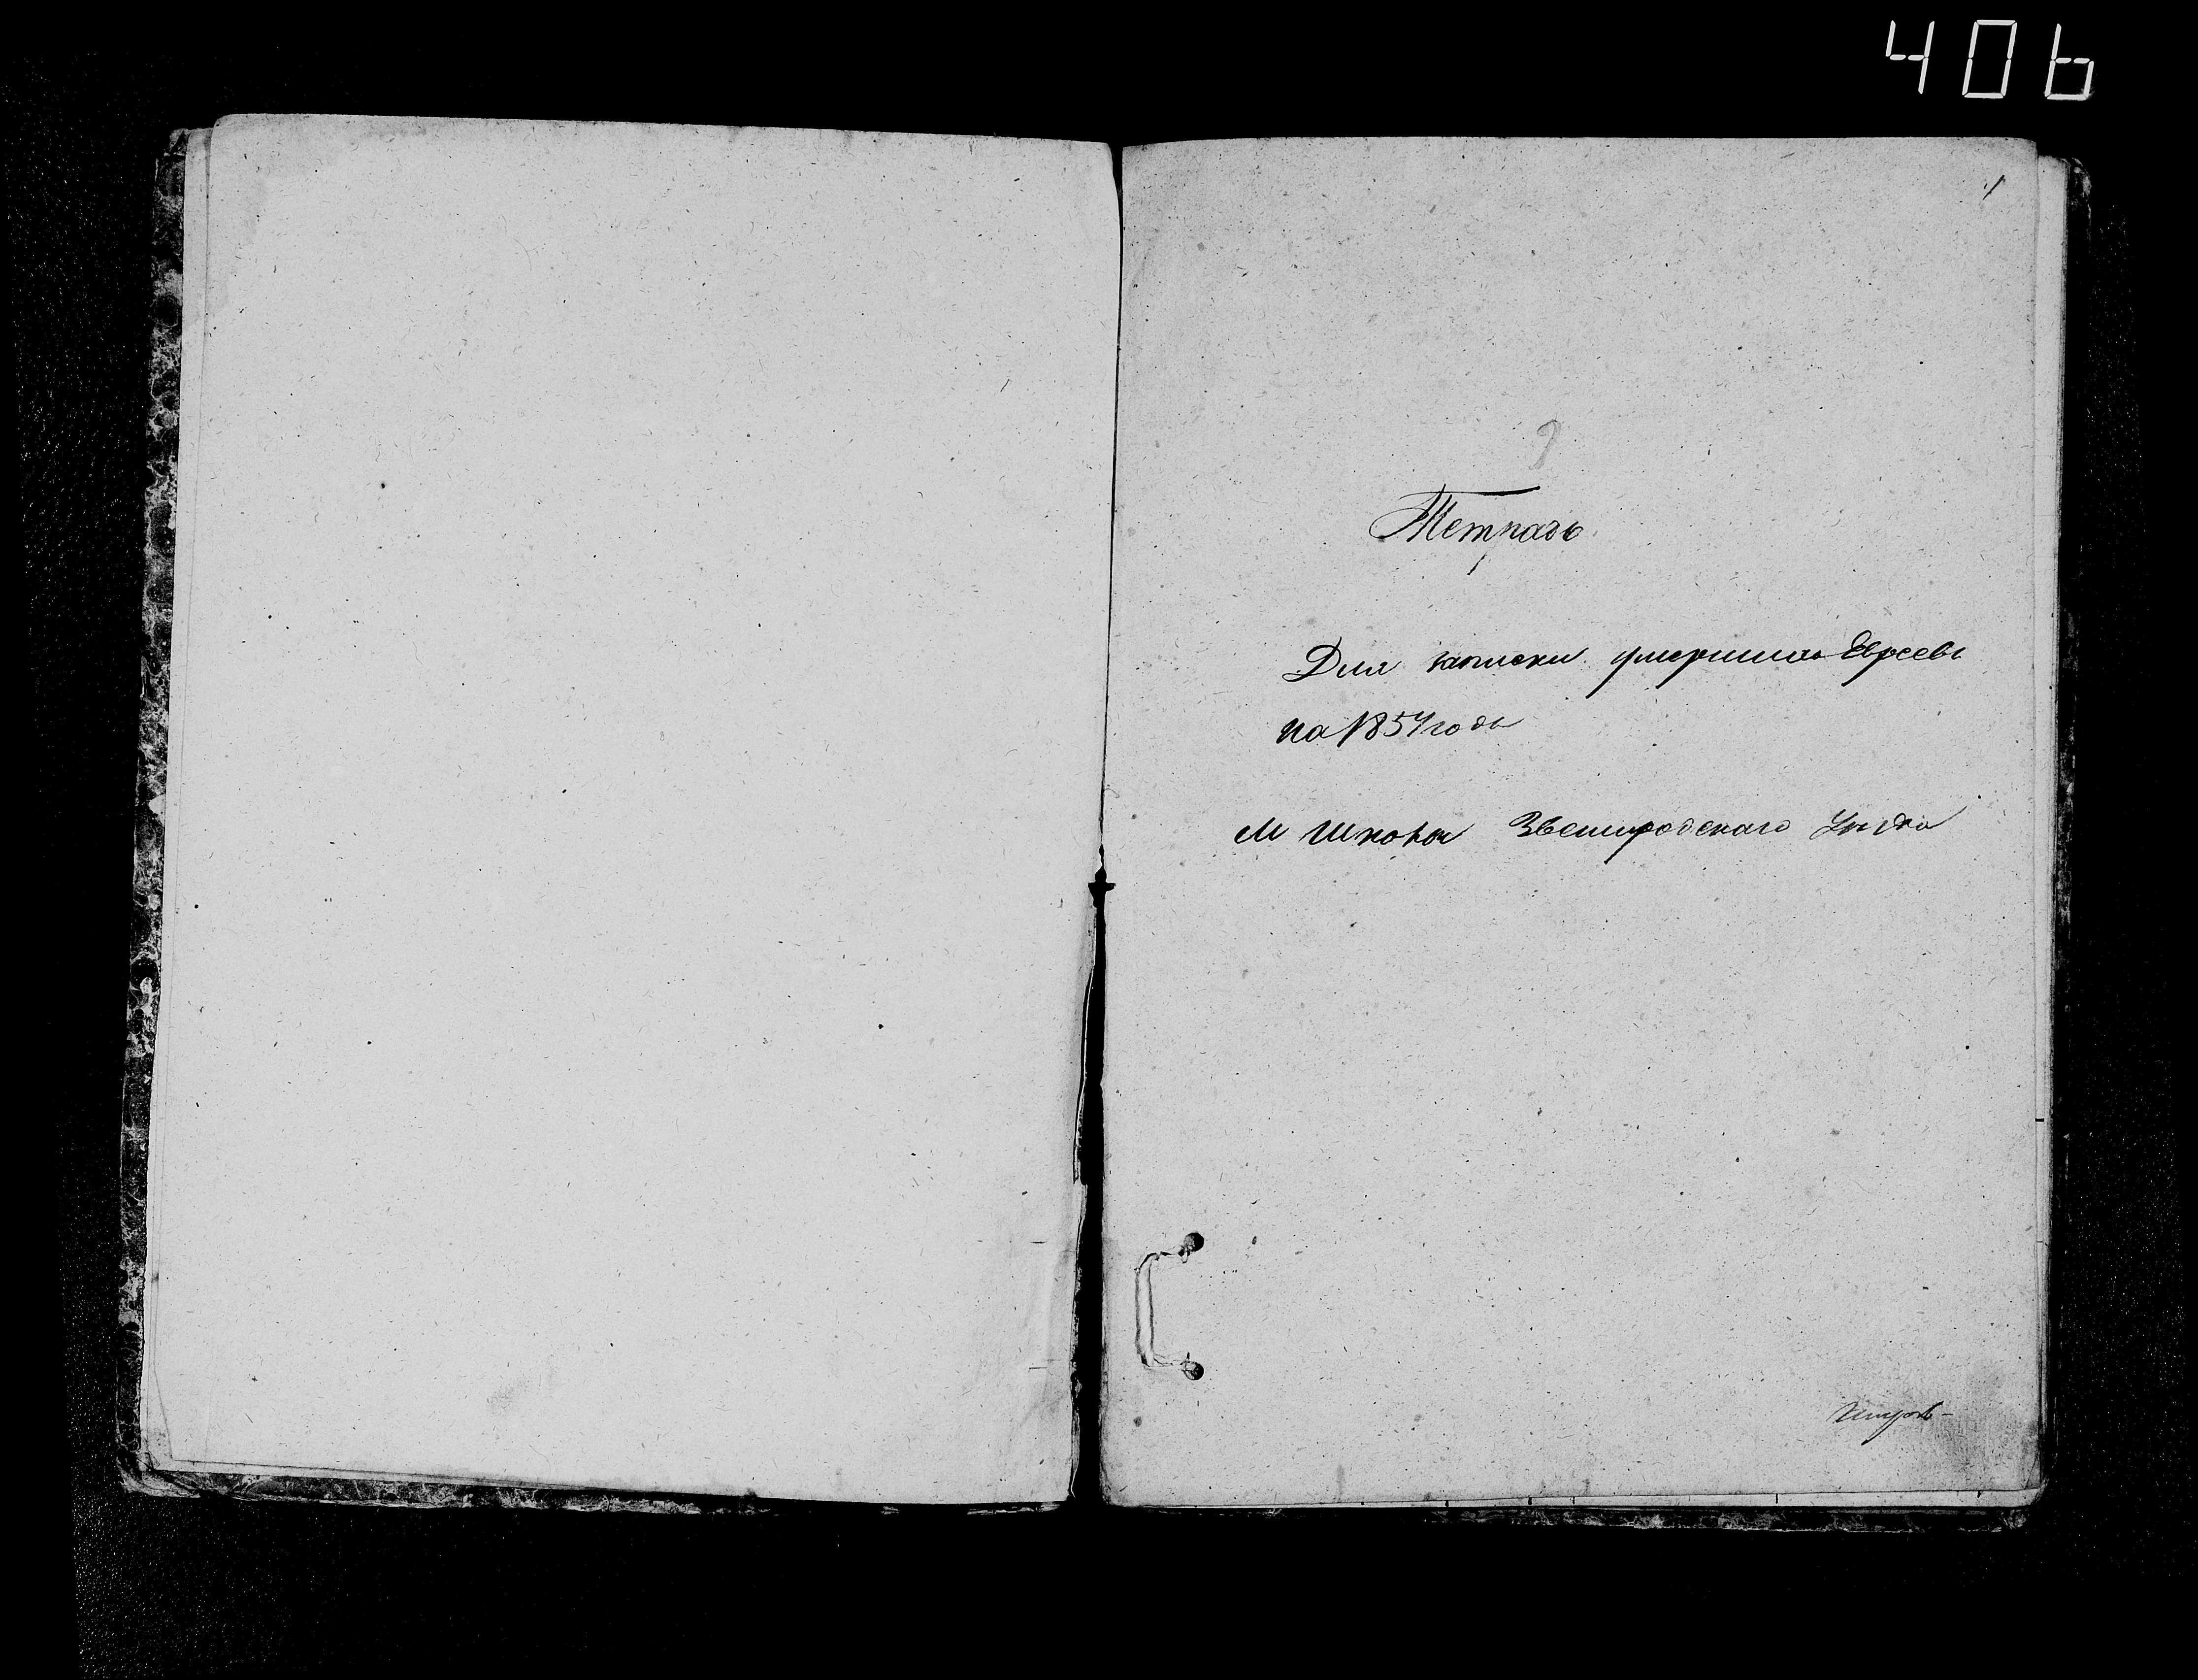 406
1
9
Тетрадь
Для записки умершихъ Евреевъ
на 1854 годъ
М Шпола Звенигородскаго Уѣзда